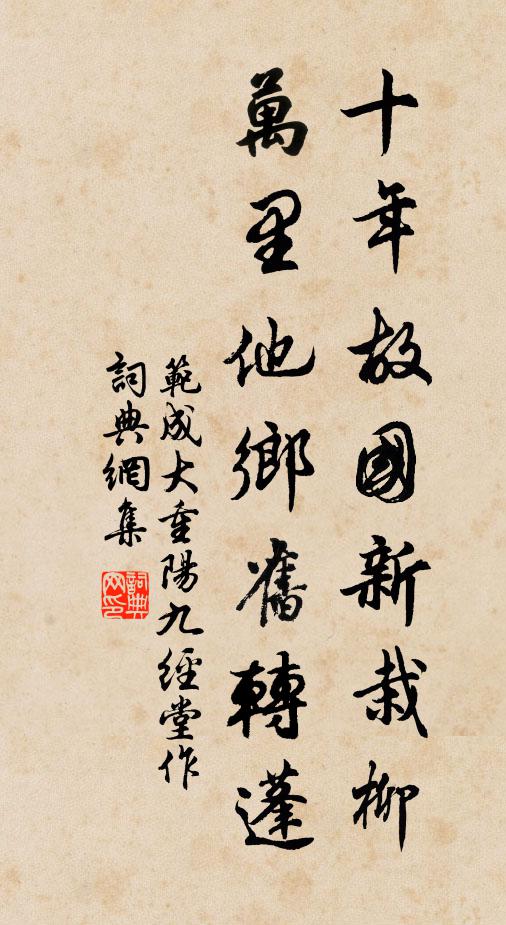 十年故國新栽柳
萬里他鄉舊轉蓬
範成大重陽九經堂作
詞典網集
詞典网印